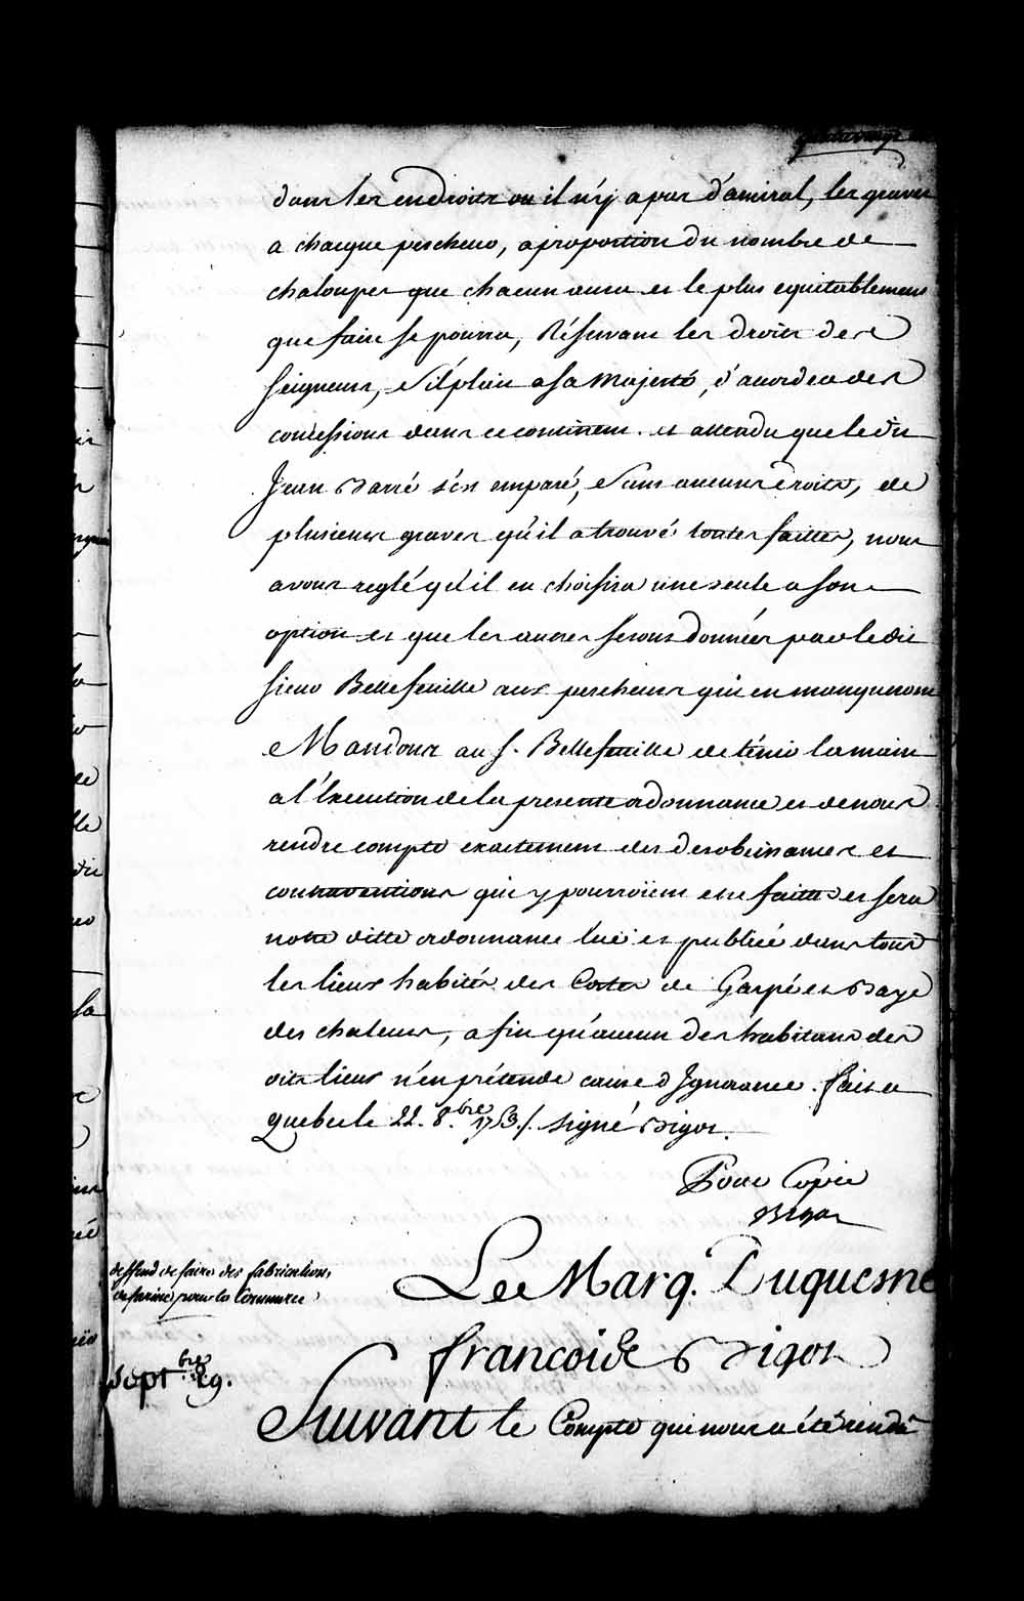 dans les endroits ou il n'y a pas d'amiral, les graves
a chaque pescheur, a proportion du nombre de
chaloupes que chacun aura et le plus equitablement
que faire se pourra, Réservant les droits des
seigneurs, s'il plait a sa majesté, d'accorder des
concessions dans ce continent. et attendu que led.
Jean Barré s'est emparé, sans aucuns droits, de
plusieurs graves qu'il a trouvé toutes faittes, nous
avons reglé qu'il en choisira une seule a son
option et que les autres seront données par ledit
sieur Bellefeuille aux pescheurs qui en manqueront
Mandons au s. Bellefeuille de tenir la main
a l'Execution de la presente ordonnance et de nous
rendre compte exactement des desobeissances et
contraventions qui y pourroient etre faittes et sera
notre ditte ordonnance lue et publiée dans tous
les lieux habités des Costes de Gaspé et Baye
des chaleurs, afin qu'aucun des habitans des
dits lieux n'en prétende cause d'Ignorance. fait a
Quebec le 22. 8.bre 1753./. signé Bigot.
Pour Copie
Bigot
deffend de faire des fabrications
de farine pour le Commerce
Le Marq. Duquesne
francois Bigot
Sept.bre 29.
Suivant le Compte qui nous a été rendu